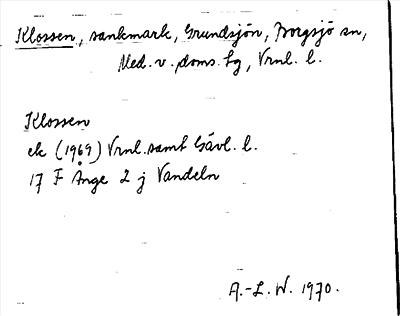 Klossen, sankmark, Grundsjön, Borgsjö sn,
Med. v. doms. tg, Vrnl. l.
Klossen
ek (1969) Vrnl. samt Gävl. l.
17 F Ange 2 j Vandeln
A.-L. W. 1970.